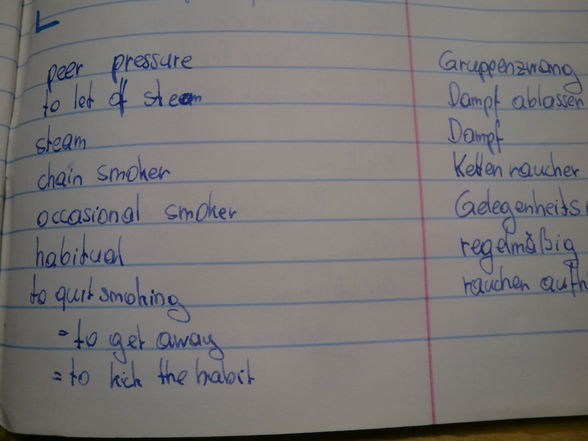 peer pressure Gruppenzwang
to let of steam Dampf ablassen
steam Dampf
chain smoker Kettenraucher
occasional smoker
habitual regelmäßig
to quit smoking rauchen
= to get away
= to kick the habit